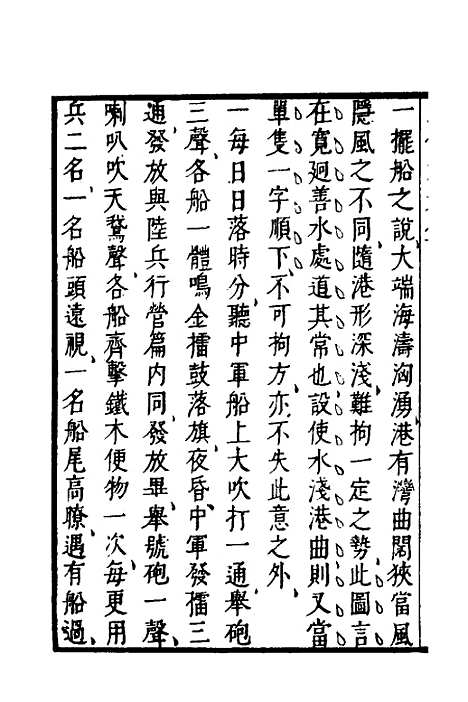 一擺船之說大端海濤洶湧港有灣曲闊狹當風
隱風之不同隨港形深淺難拘一定之勢此圖言
在寬迥善水處道其常也設使水淺港曲則又當
單隻一字順下不可拘方亦不失此意之外
一每日日落時分聽中軍船上大吹打一通舉砲
三聲各船一體鳴金擂鼓落旗夜昏中軍發擂三
通發放與陸兵行營篇內同發放畢舉號砲一聲
喇叭吹天鵞聲各船齊擊鐵木便物一次每更用
兵二名一名船頭遠視一名船尾高瞭遇有船過